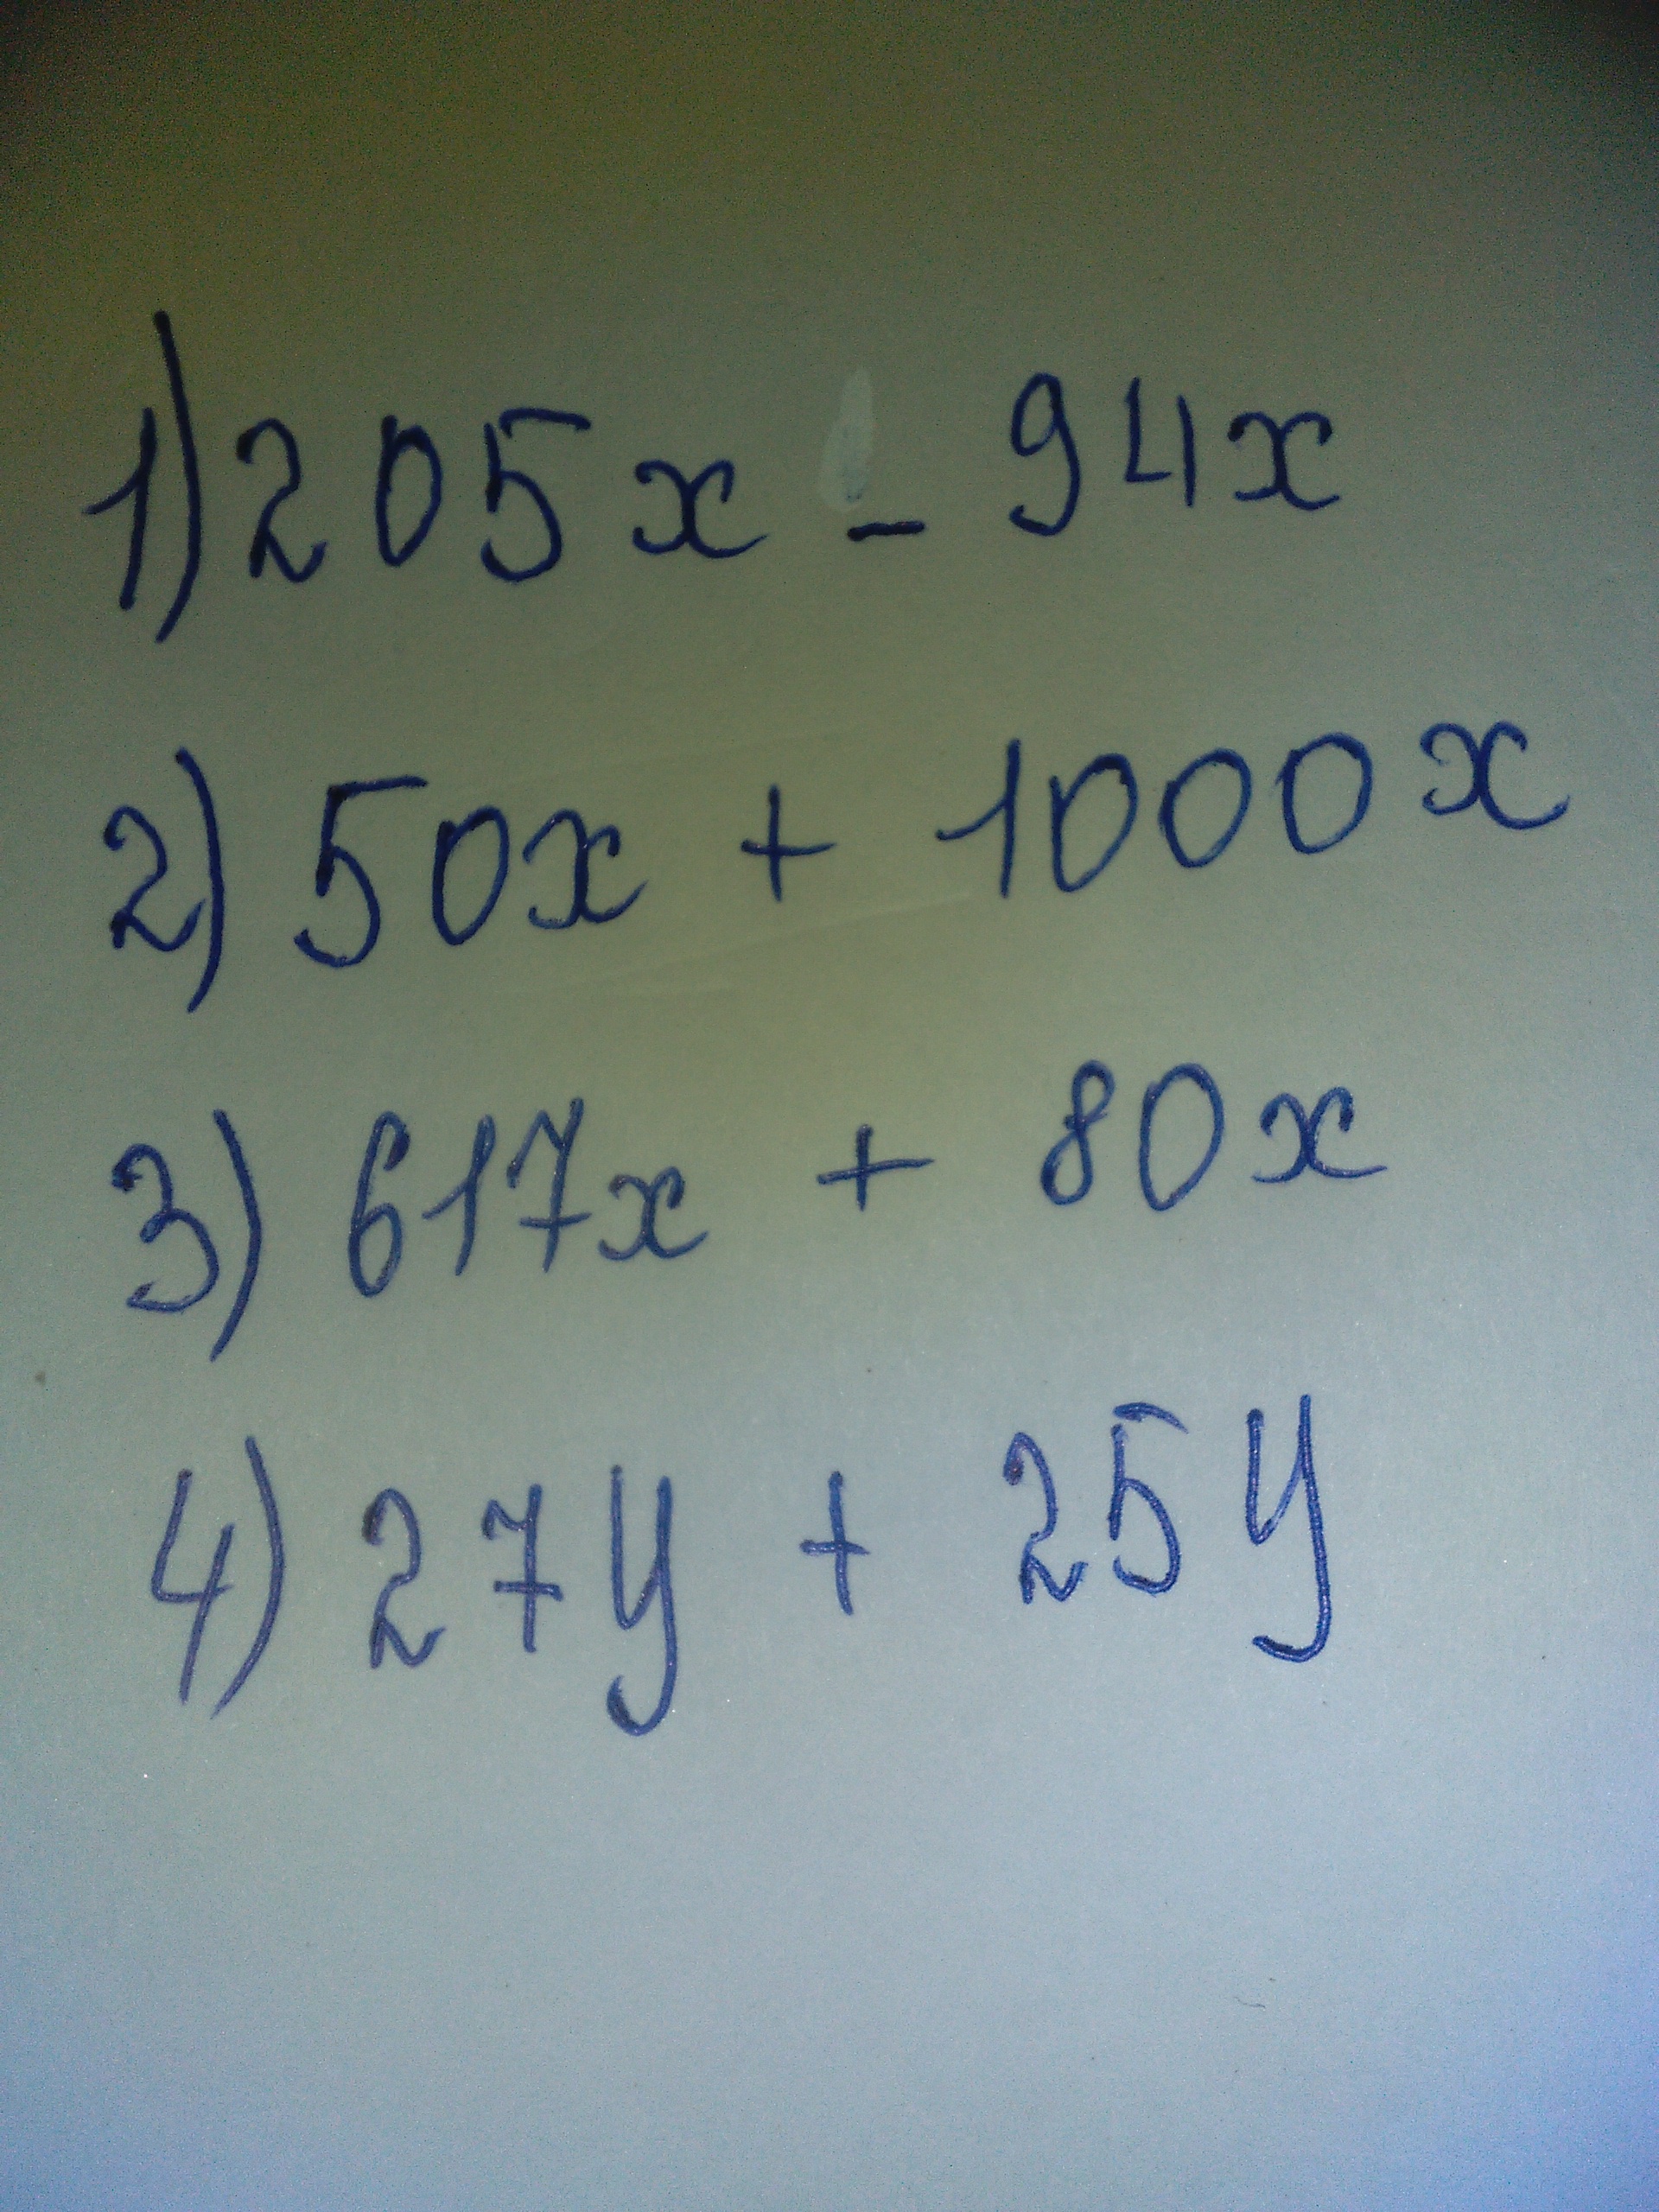 1) 205x - 94x
2) 50x + 1000x
3) 617x + 80x
4) 27y + 25y